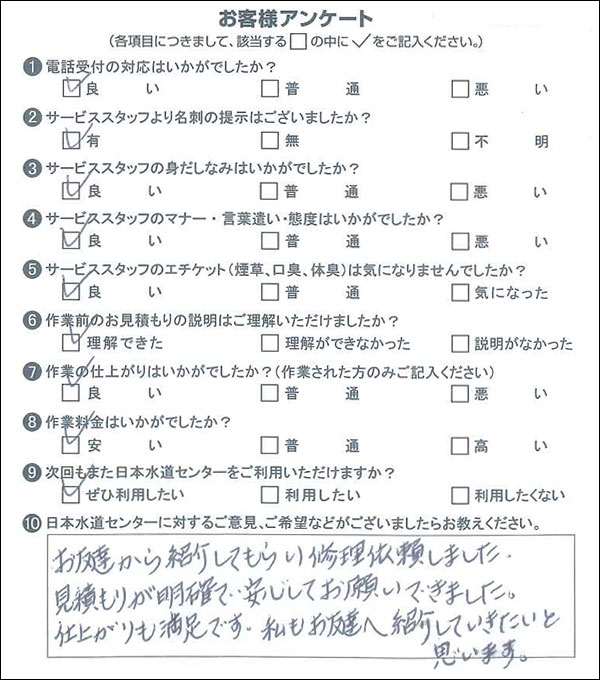 お客様アンケート
(各項目につきまして、該当する□の中に✓をご記入ください。)
❶電話受付の対応はいかがでしたか?
☑良い □普通 □悪い
❷サービススタッフより名刺の提示はございましたか?
☑有 □無 □不明
❸サービススタッフの身だしなみはいかがでしたか?
☑良い □普通 □悪い
❹サービススタッフのマナー・言葉遣い・態度はいかがでしたか?
☑良い □普通 □悪い
❺サービススタッフのエチケット(煙草、口臭、体臭)は気になりませんでたか?
☑良い □普通 □気になった
❻作業前のお見積もりの説明はご理解いただけましたか?
☑理解できた □理解ができなかった □説明がなかった
❼作業の仕上がりはいかがでしたか?(作業された方のみご記入ください)
☑良い □普通 □悪い
❽作業料金はいかがでしたか?
☑安い □普通 □高い
❾次回もまた日本水道センターをご利用いただけますか?
☑ぜひ利用したい □利用したい □利用したくない
❿日本水道センターに対するご意見、ご希望などがございましたらお教えください。
お友達から紹介してもらい修理依頼しました.
見積もりが明確で、安心してお願いできました。
仕上がりも満足です.私もお友達へ紹介していきたいと
思います。